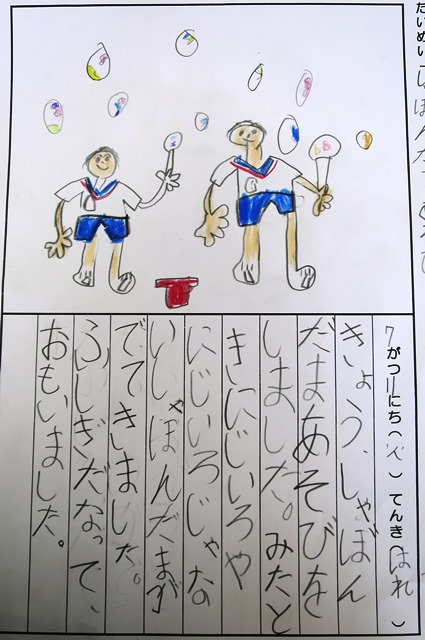 だいめい
7がつ11にち(火)てんき(はれ)
きょう、しゃぼん
だまあそびを
しました。みたと
きにじいろや
にじいろじゃな
いしゃぼんだまが
でてきました。
ふしぎだなって、
おもいました。